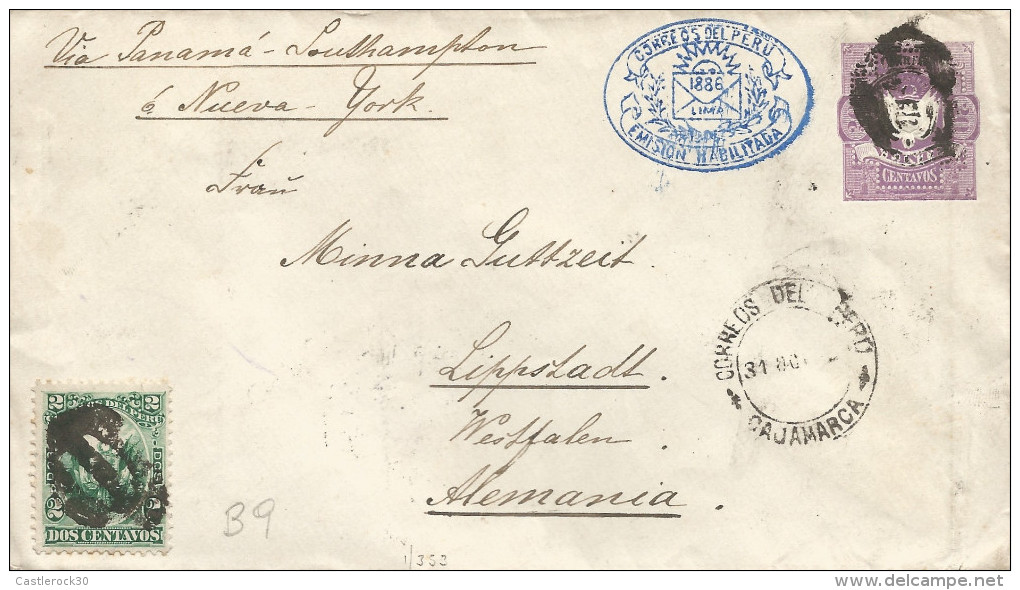 Via Panamá - Southampton
ó Nueva - York.
CORREOS DEL PERU
1886
LIMA
EMISION HABILITADA
CENTAVOS
Frau
Minna Guttzeit.
Lippstadt.
Westfalen.
Alemania.
CORREOS DEL PERU
31
CAJAMARCA
2 2
2 2
DOS CENTAVOS
B9
1/353
Castlerock30
delcampe.net